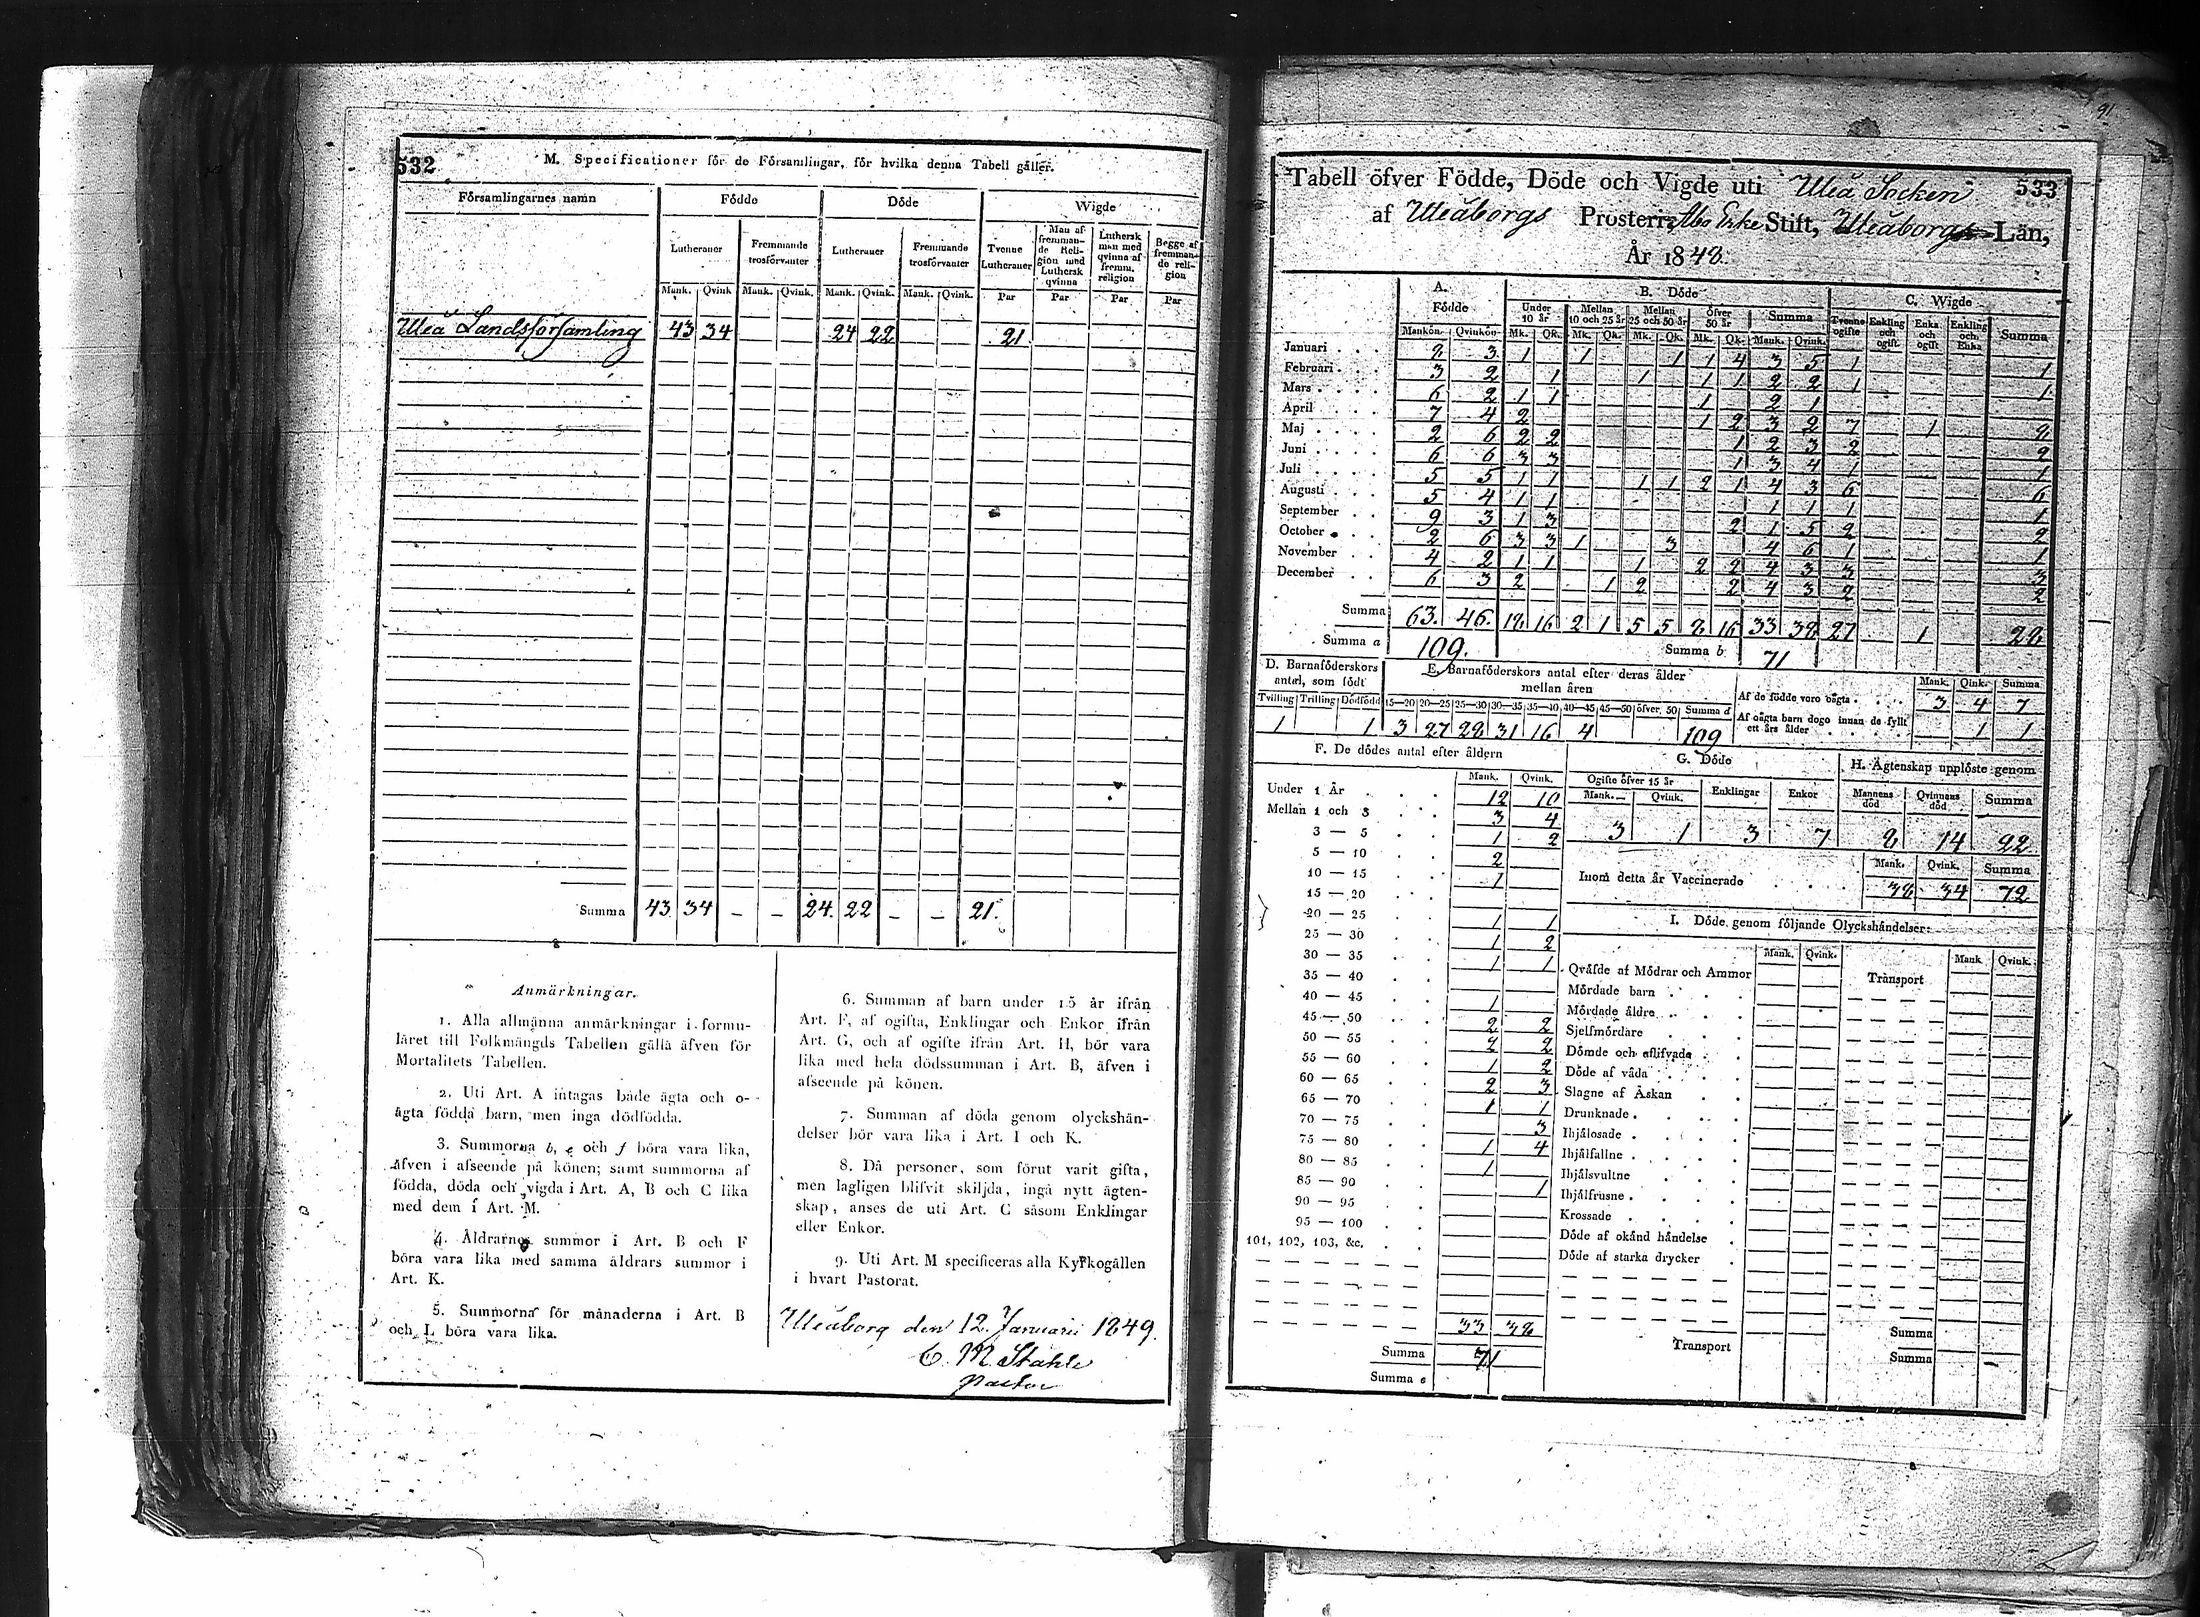 532
M. Specificationer för de Församlingar, för hvilka denna Tabell gäller.
Församlingarnes namn | Födde | Döde | Wigde
Lutheraner | Fremmande trosförvanter | Lutheraner | Fremmande trosförvanter | Tvenne Lutheraner | Man af fremmande Religion med Luthersk qvinna | Luthersk man med qvinna af fremm. religion | Begge af fremmande religion
Mank. Qvink. Mank. Qvink. Mank. Qvink. Mank. Qvink. Par Par Par Par
Uleå Landsförsamling 43 34 24 22 21
Summa 43 34 – – 24 22 – – 21
Anmärkningar.
1. Alla allmänna anmärkningar i formu-
läret till Folkmängds Tabellen gälla äfven för
Mortalitets Tabellen.
2. Uti Art. A intagas både ägta och o-
ägta födda barn, men inga dödfödda.
3. Summorna b, e och f böra vara lika,
äfven i afseende på könen; samt summorna af
födda, döda och vigda i Art. A, B och C lika
med dem i Art. M.
4. Åldrarnes summor i Art. B och F
böra vara lika med samma åldrars summor i
Art. K.
5. Summorna för månaderna i Art. B
och L böra vara lika.
6. Summan af barn under 15 år ifrån
Art. F, af ogifta, Enklingar och Enkor ifrån
Art. G, och af ogifte ifrån Art. H, bör vara
lika med hela dödssumman i Art. B, äfven i
afseende på könen.
7. Summan af döda genom olyckshän-
delser bör vara lika i Art. I och K.
8. Då personer, som förut varit gifta,
men lagligen blifvit skiljda, ingå nytt ägten-
skap, anses de uti Art. C såsom Enklingar
eller Enkor.
9. Uti Art. M specificeras alla Kyrkogällen
i hvart Pastorat.
Uleåborg den 12 Januarii 1849.
C. M. Stahle
Pastor
91
533
Tabell öfver Födde, Döde och Vigde uti Uleå Socken
af Uleåborgs Prosteri, Åbo Erke Stift, Uleåborgs Län,
År 1848.
A. Födde | B. Döde | C. Wigde
Under 10 år | Mellan 10 och 25 år | Mellan 25 och 50 år | Öfver 50 år | Summa | Tvenne ogifte | Enkling och ogift | Enka och ogift | Enkling och Enka | Summa
Mankön Qvinkön Mk. Qk. Mk. Qk. Mk. Qk. Mk. Qk. Mank. Qvink.
Januari 8 3 1 1 1 1 4 3 5 1 1
Februari 3 2 1 1 1 1 2 2 1 1
Mars 6 2 1 1 1 2 1
April 7 4 2 1 2 3 2 7 1 8
Maj 2 6 2 2 1 2 3 2 2
Juni 6 6 3 3 1 3 4 1 1
Juli 5 5 1 1 1 1 2 1 4 3 6 6
Augusti 5 4 1 1 1 1 1 1
September 9 3 1 3 2 1 5 2 2
October 2 6 3 3 1 3 4 6 1 1
November 4 2 1 1 1 2 2 4 3 3 3
December 6 3 2 1 2 2 4 3 2 2
Summa 63. 46. 18 16 2 1 5 5 8 16 33 38 27 1 28
Summa a 109. Summa b 71
D. Barnaföderskors antal, som födt
Tvilling Trilling Dödfödd
1 1
E. Barnaföderskors antal efter deras ålder mellan åren
15—20 20—25 25—30 30—35 35—40 40—45 45—50 öfver 50 Summa d
3 27 28 31 16 4 109
Mank. Qink. Summa
Af de födde voro oägta 3 4 7
Af oägta barn dogo innan de fyllt ett års ålder 1 1
F. De dödes antal efter åldern
Mank. Qvink.
Under 1 År 12 10
Mellan 1 och 3 3 4
3 — 5 1 2
5 — 10 2
10 — 15 1
15 — 20
20 — 25 1 1
25 — 30 1 2
30 — 35 1 1
35 — 40
40 — 45 1
45 — 50 2 2
50 — 55 2 2
55 — 60 1 2
60 — 65 2 3
65 — 70 1 1
70 — 75 3
75 — 80 1 4
80 — 85 1
85 — 90 1
90 — 95
95 — 100
101, 102, 103, &c.
33 38
Summa 71
Summa e
G. Döde
Ogifte öfver 15 år | Enklingar | Enkor
Mank. Qvink.
3 1 3 7
H. Ägtenskap upplöste genom
Mannens död | Qvinnans död | Summa
8 14 22
Mank. Qvink. Summa
Inom detta år Vaccinerade 38 34 72
I. Döde genom följande Olyckshändelser:
Mank. Qvink. Mank Qvink.
Qväfde af Mödrar och Ammor
Mördade barn
Mördade äldre
Sjelfmördare
Dömde och aflifvade
Döde af våda
Slagne af Åskan
Drunknade
Ihjälosade
Ihjälfallne
Ihjälsvultne
Ihjälfrusne
Krossade
Döde af okänd händelse
Döde af starka drycker
Transport
Transport
Summa
Summa –